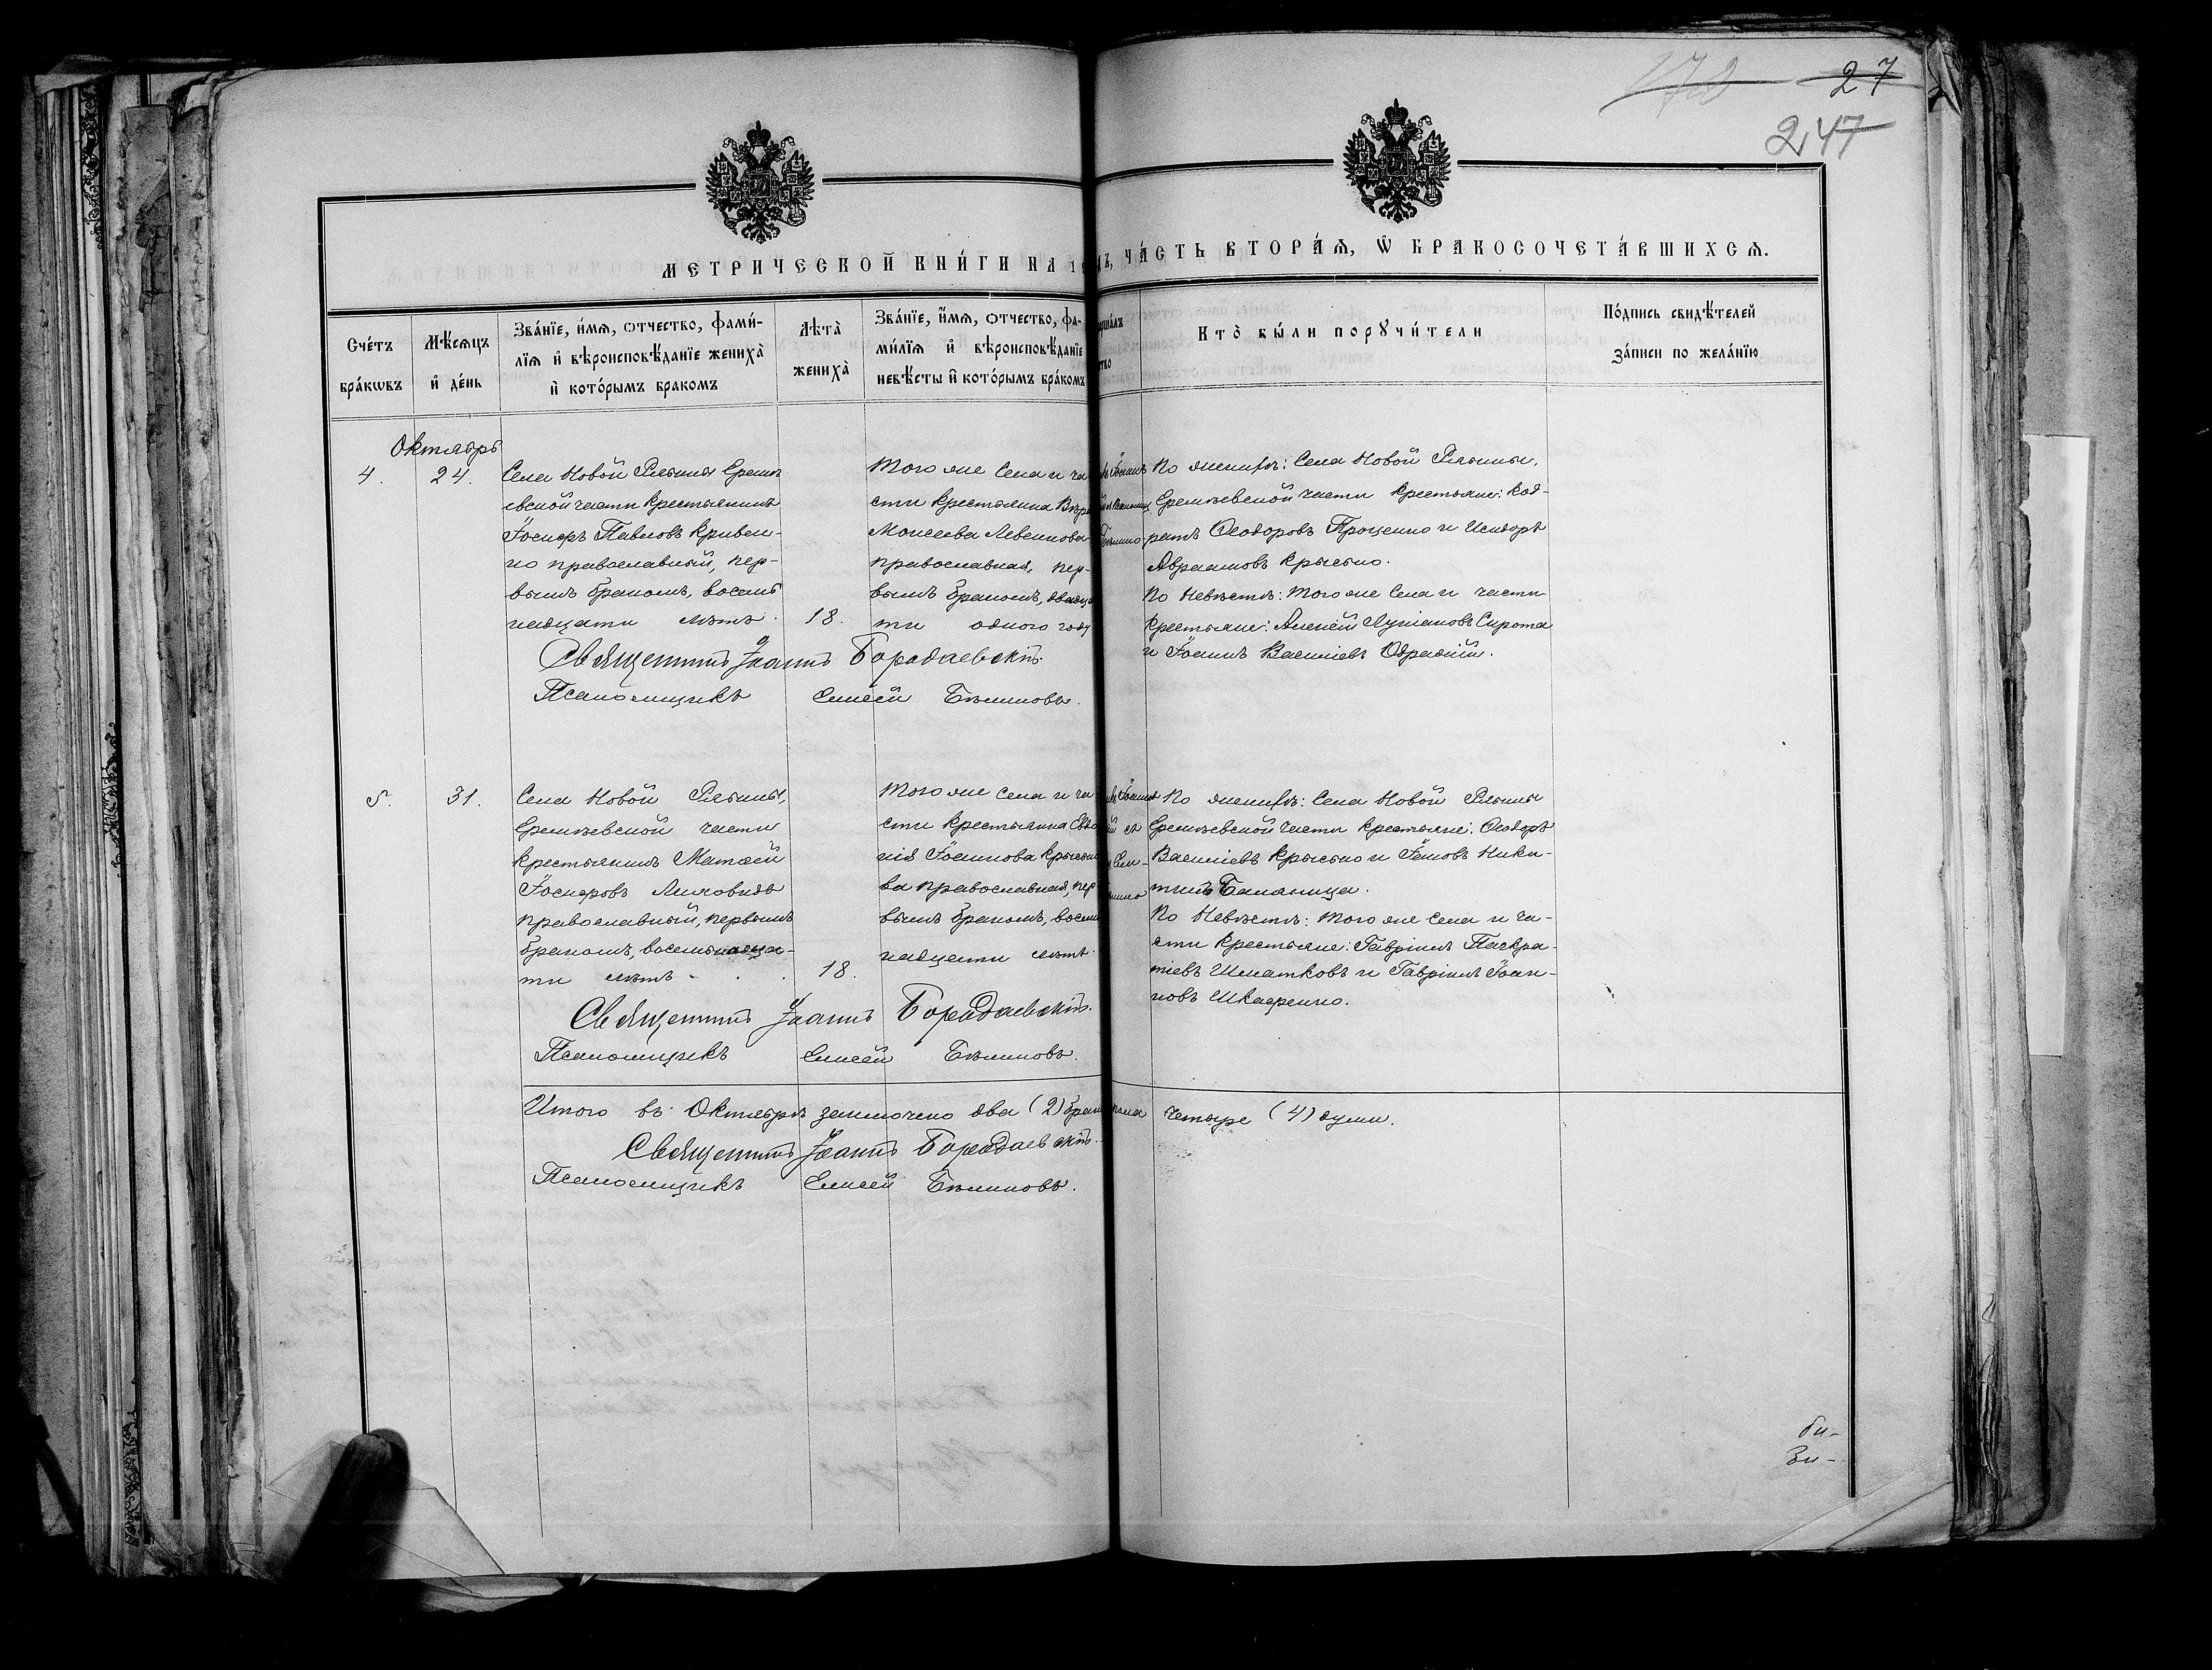 27
247
МЕТРИЧЕСКОЙ КНИ́ГИ НА 19
, ЧА́СТЬ ВТОРА́Ѧ, Ѿ БРАКОСОЧЕТА́ВШИХСѦ.
Сче́тъ бра́кѡвъ
Мѣ́сяцъ и҆ де́нь
Зва́нїе, и҆́мѧ, ѻтчество, фами́-
лїѧ и҆ вѣроисповѣ́данїе женихà
и҆ кото́рымъ бракомъ
Лѣтà женихà
Зва́нїе, и҆́мѧ, ѻтчество, фа-
ми́лїѧ и҆ вѣроисповѣ́данїе
невѣ́сты и҆ кото́рымъ бра́комъ
Кто̀ бы́ли порꙋчи́тели
По́дпись свидѣ́телей
за́писи по жела́нїю
Октябрь
4.
24.
Села Новой Рябины Ереме-
евской части крестьянинъ
Іосифъ Павловъ Кривен-
ко православный, пер-
вымъ бракомъ, восемь
надцати лѣтъ.
18.
Того же Села и ча
сти крестьянка Вѣра
Моисеева Левенкова
православная, пер-
вымъ бракомъ, двадца
ти одного году
По женихѣ: Села Новой Рябины,
Еремѣевской части крестьяне: Код-
ратъ Ѳеодоровъ Проценко и Исидоръ
Авраамовъ Крысько.
По Невѣстѣ: Того же Села и части
крестьяне: Алексій Лукіановъ Сирота
и Іоаннъ Василіевъ Обравдій.
Священникъ Іоаннъ Бородаевскій.
Псаломщикъ Елисей Бѣликовъ.
5.
31.
Села Новой Рябины,
Еремѣевской части
крестьянинъ Матѳей
Іосифовъ Лиховидъ
православный, первымъ
бракомъ, восемьнадца-
ти лѣтъ
18.
Того же села и ча
сти крестьянка Евдо
кія Іоаннова Крысько
ва православная, пер
вымъ бракомъ, восемь
надцати лѣтъ.
По женихѣ: Села Новой Рябины
Еремѣевской части крестьяне: Ѳеодоръ
Василіевъ Крысько и Іаковъ Ники-
тинъ Балакица.
По Невѣстѣ: того же села и ча-
сти крестьяне: Гавріилъ Панкра-
тіевъ Шматковъ и Гавріилъ Іоан-
новъ Шкаренко.
Священникъ Іоаннъ Бородаевскій.
Псаломщикъ Елисей Бѣликовъ.
Итого въ Октябрѣ заключено два (2) брака
четыре (4) души.
Священникъ Іоаннъ Бородаевскій.
Псаломщикъ Елисей Бѣликовъ.